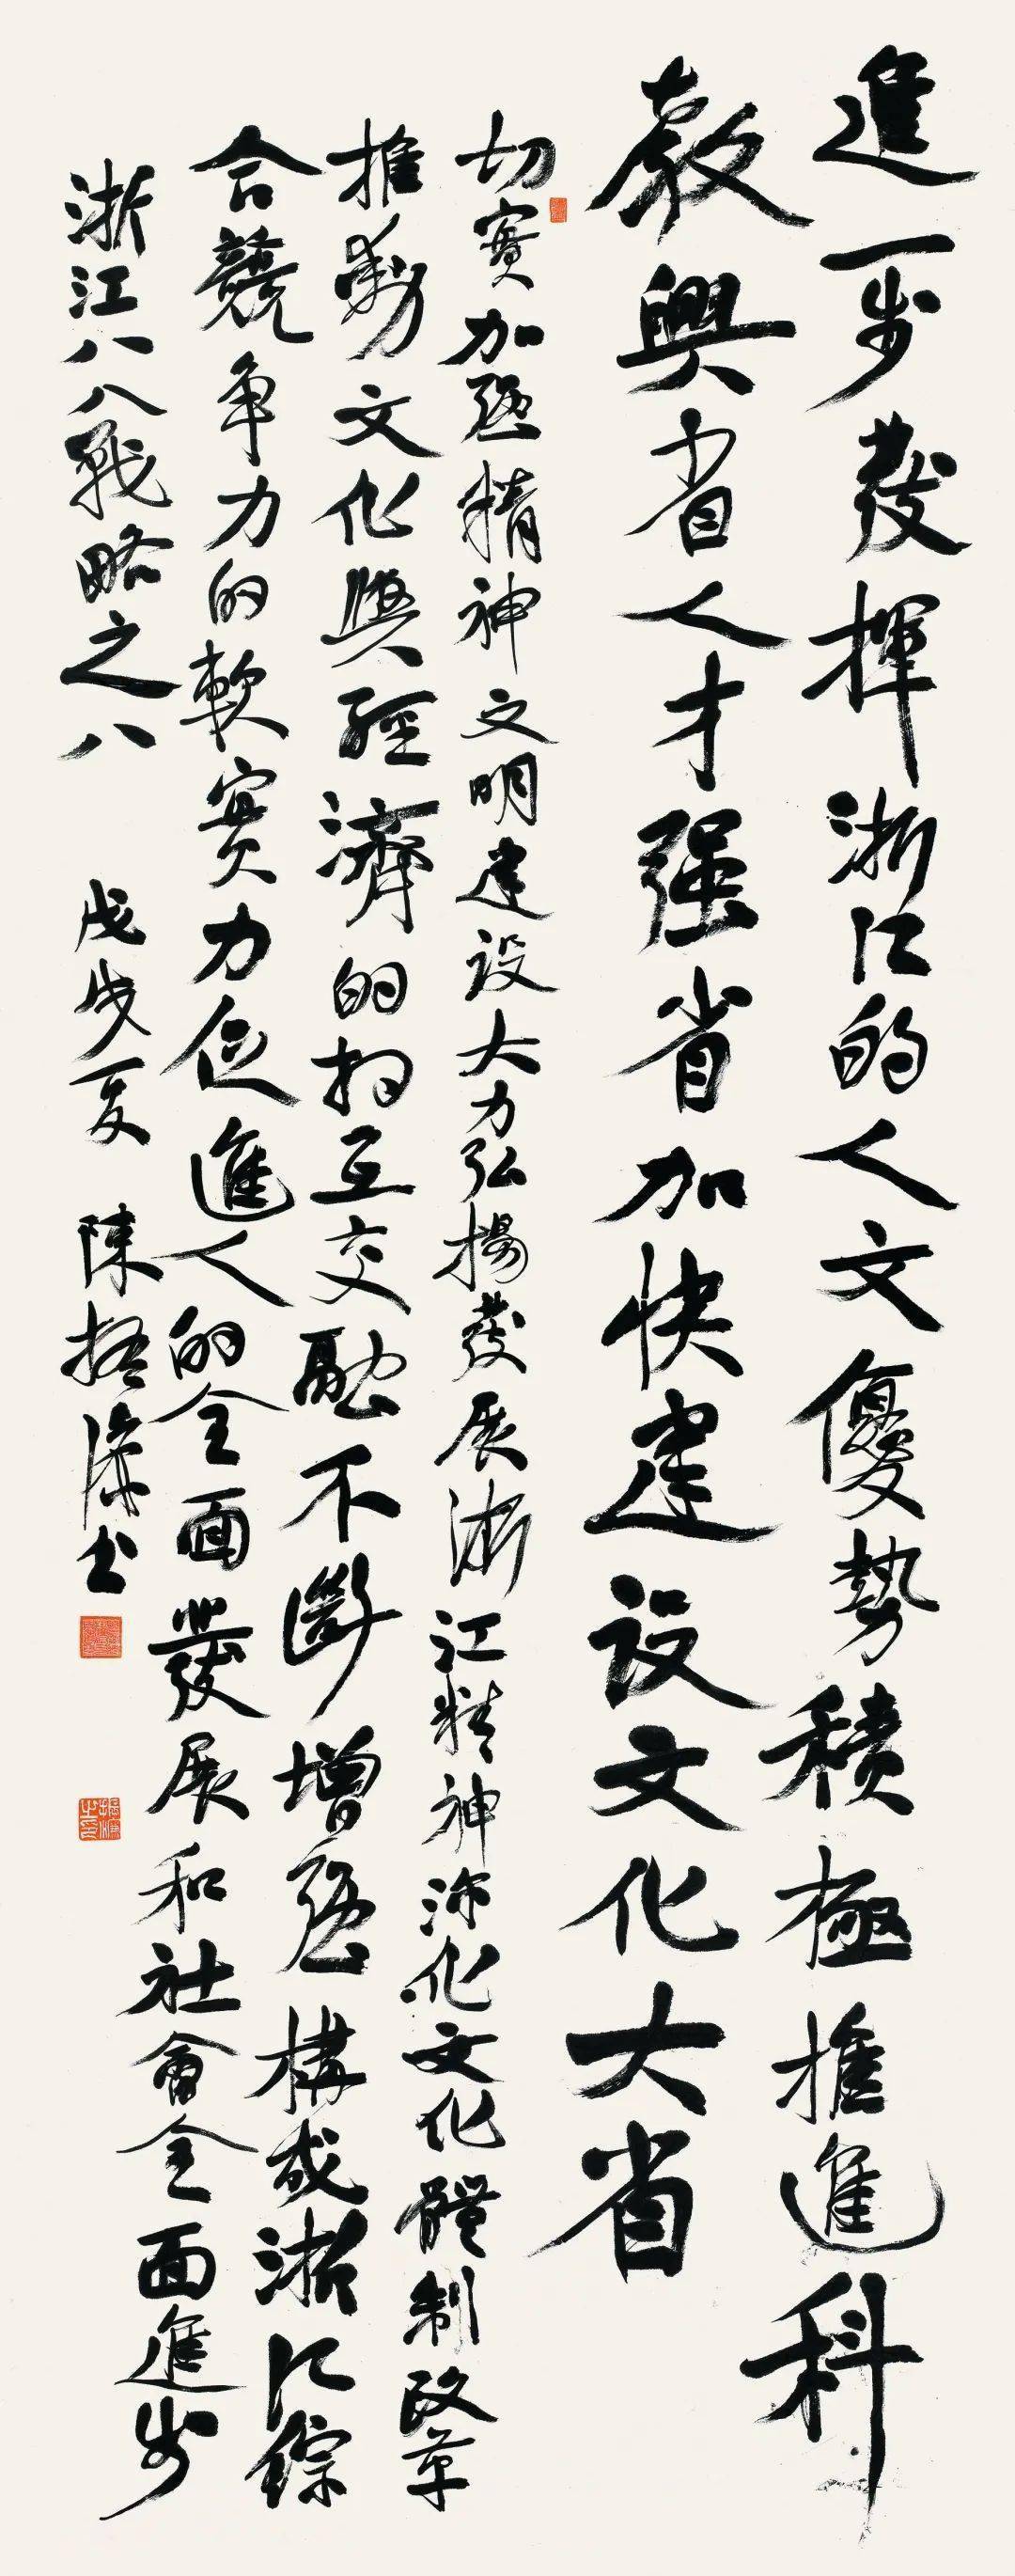 進一步發揮浙江的人文優勢積極推進科
教興省人才强省加快建設文化大省
切實加强精神文明建設大力弘揚發展浙江精神深化文化體制改革
推動文化與經濟的相互交融不斷增强構成浙江綜
合競争力的軟實力促進人的全面發展和社會全面進步
浙江八八戰略之八 戊戌夏 陳振濂書